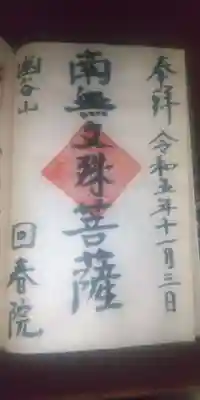 奉拝 令和五年十一月三日
南無文殊菩薩
幽谷山
回春院